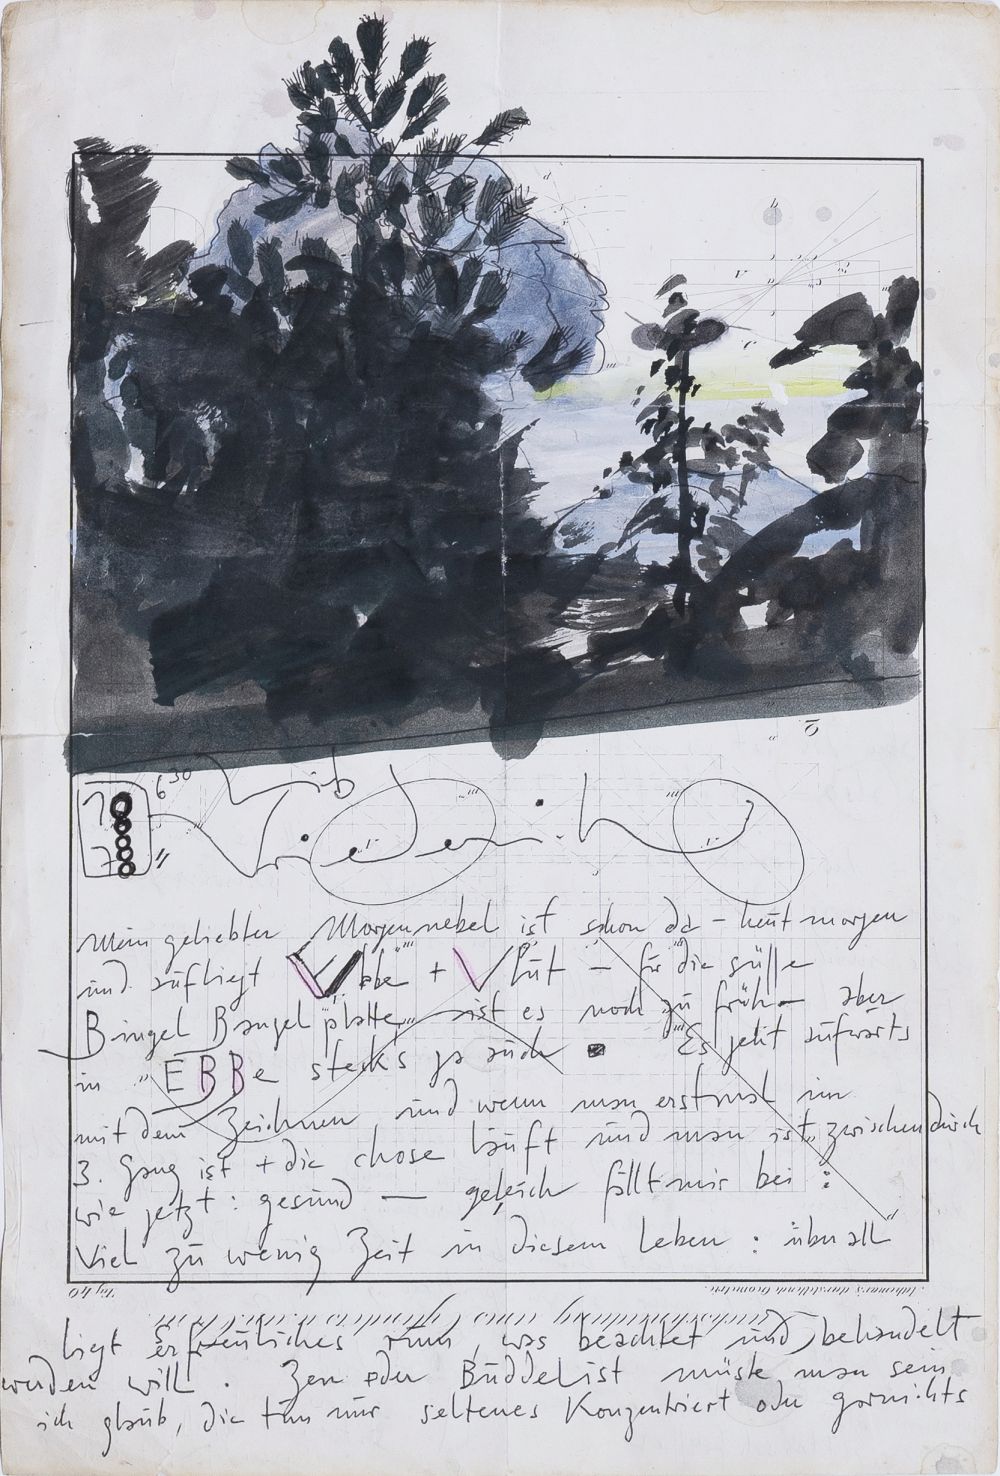 6 30
lieb
Friederike
Mein geliebter Morgennebel ist schon da – heut morgen
und aufliegt Ebbe + Flut – für die
Bingel Bangel platte, ist es noch zu früh – aber
in "EBBe stecks ja auch Es geht aufwärts
mit dem Zeichnen und wenn man erstmal im
3. Gang ist + die chose läuft und man ist, zwischendurch
wie jetzt: gesund — gleich fällt mir bei :
Viel zu wenig Zeit in diesem Leben : überall
Taf. 40
liegt erfreuliches rum, was beachtet und behandelt
werden will. Zen oder Buddelist müste man sein
ich glaub, die tun nur seltenes Konzentriert oder garnichts